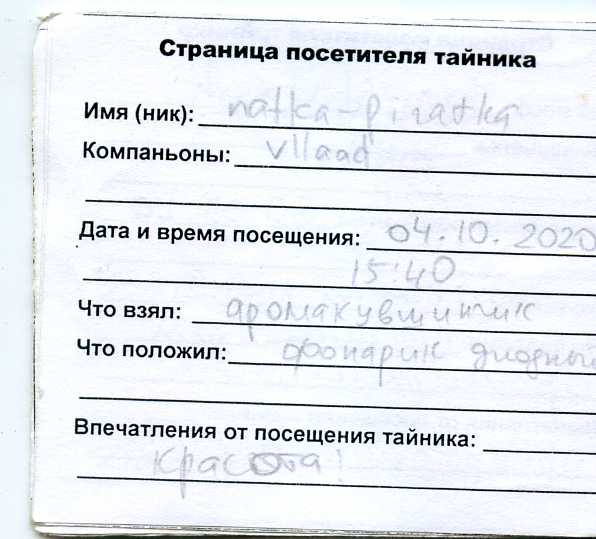 Страница посетителя тайника
Имя (ник): natka-piratka
Компаньоны: vllaad
Дата и время посещения: 04.10.2020
15:40
Что взял: аромакувшинчик
Что положил: фонарик диодный
Впечатления от посещения тайника:
Красота!